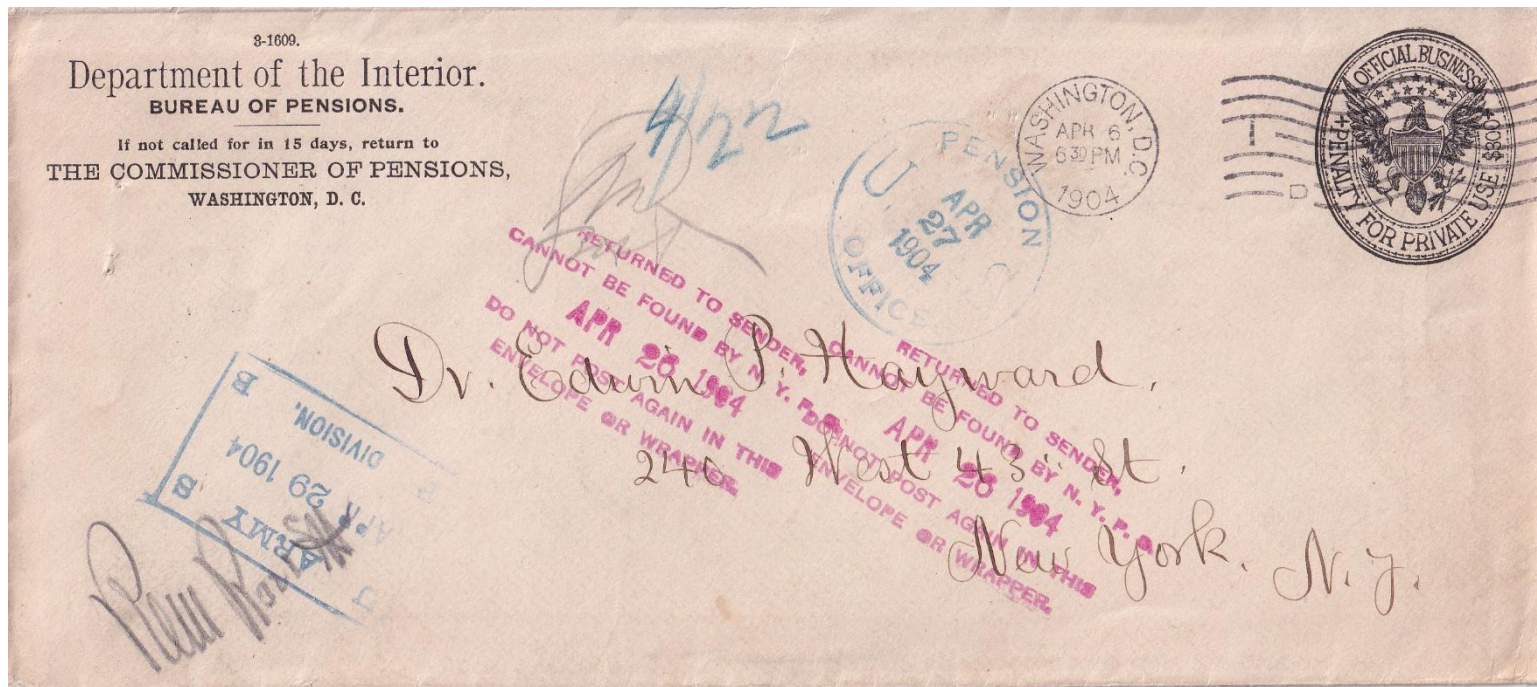 3-1609.
Department of the Interior.
BUREAU OF PENSIONS.
If not called for in 15 days, return to
THE COMMISSIONER OF PENSIONS,
WASHINGTON, D. C.
4/22
PENSION
U. S.
APR
27
1904
OFFICE
WASHINGTON, D.C.
APR 6
6 30 PM
1904
I
D
OFFICIAL BUSINESS
PENALTY FOR PRIVATE USE $300
RETURNED TO SENDER,
CANNOT BE FOUND BY N. Y. P. O.
APR 26 1904
DO NOT POST AGAIN IN THIS
ENVELOPE OR WRAPPER.
RETURNED TO SENDER,
CANNOT BE FOUND BY N. Y. P. O.
APR 26 1904
DO NOT POST AGAIN IN THIS
ENVELOPE OR WRAPPER.
Dr. Edwin P. Hayward.
240 West 43" St.
New York. N. Y.
ARMY
S
APR 29 1904
DIVISION.
B